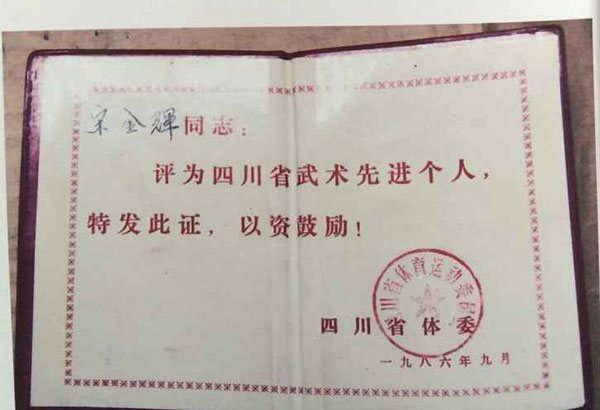 宋金輝同志：
评为四川省武术先进个人，
特发此证，以资鼓励！
四川省体育运动委员会
四川省体委
一九八六年九月